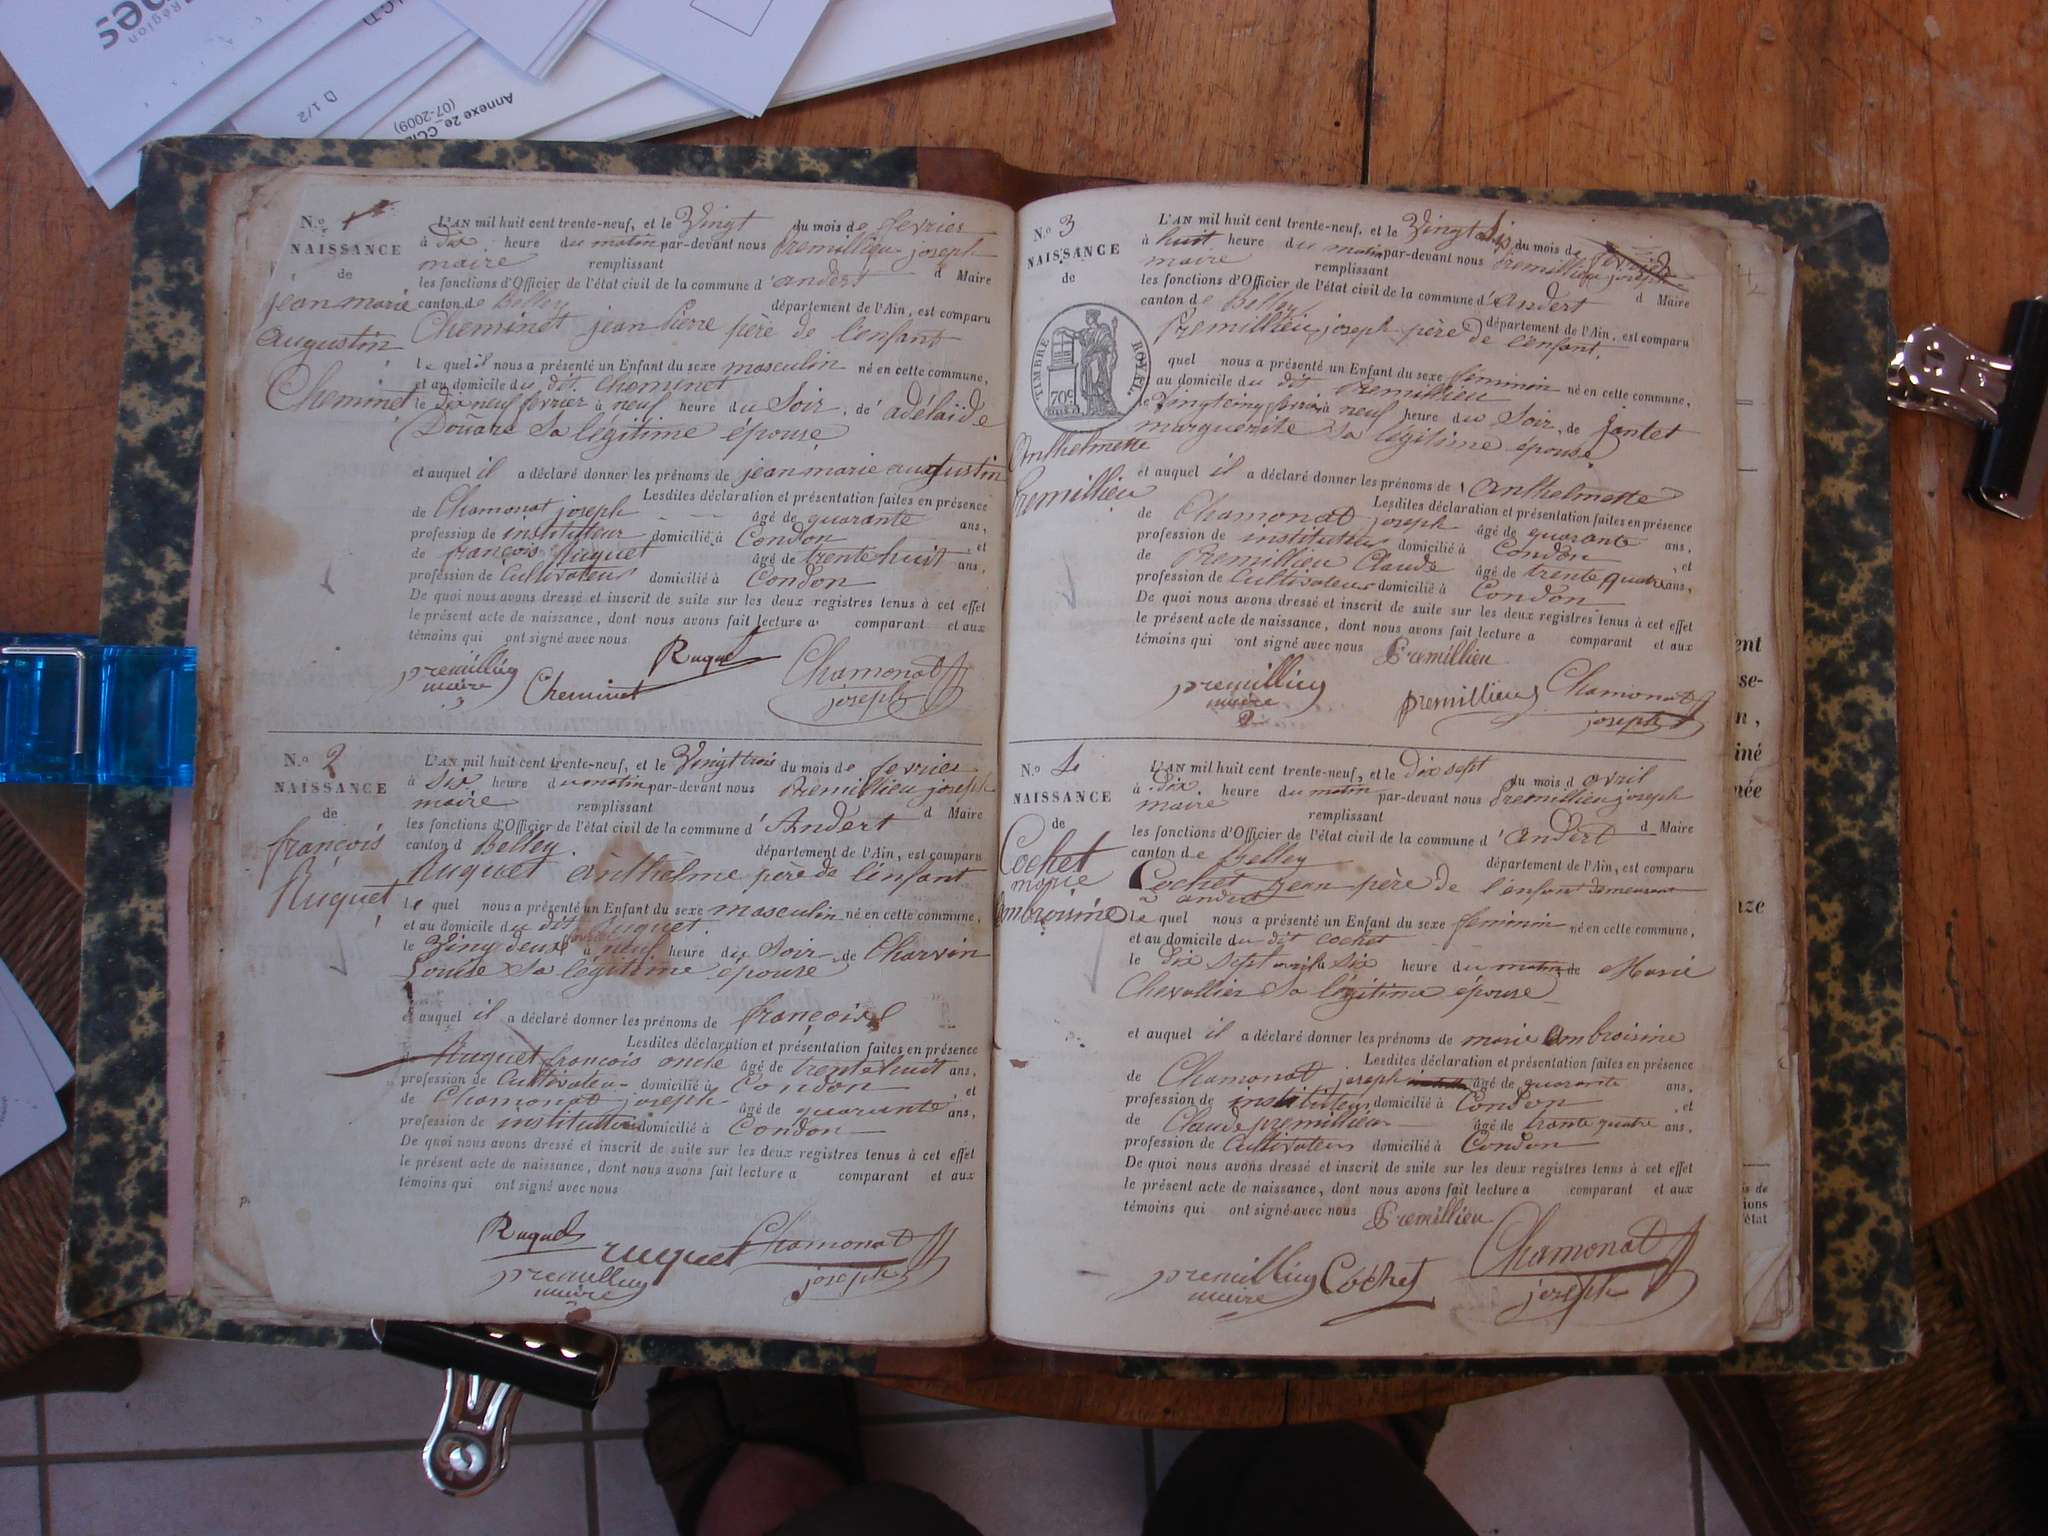 Région
D 1/2
Annexe 2e
(07-2009)
N.o 1
NAISSANCE
de
jean marie
augustin
Cheminet
L'AN mil huit cent trente-neuf, et le Vingt du mois de fevrier
à dix heure du matin par-devant nous Premillieu joseph
maire remplissant d Maire
les fonctions d'Officier de l'état civil de la commune d'andert
canton de Belley département de l'Ain, est comparu
Cheminet jean pierre père de l'enfant
le quel il nous a présenté un Enfant du sexe masculin né en cette commune,
et au domicile du dit Cheminet
le dix neuf fevrier à neuf heure du Soir, de adélaïde
Douare Sa légitime épouse
et auquel il a déclaré donner les prénoms de jean marie augustin
Lesdites déclaration et présentation faites en présence
de Chamonat joseph âgé de quarante ans,
profession de instituteur domicilié à Condon et
de françois Ruquet âgé de trente huit ans,
profession de Cultivateur domicilié à Condon
De quoi nous avons dressé et inscrit de suite sur les deux registres tenus à cet effet
le présent acte de naissance, dont nous avons fait lecture a comparant et aux
témoins qui ont signé avec nous
premillieu maire Cheminet Ruquet Chamonat joseph
N.o 2
NAISSANCE
de
françois
Ruquet
L'AN mil huit cent trente-neuf, et le Vingt trois du mois de fevrier
à Six heure du matin par-devant nous Premillieu joseph
maire remplissant d Maire
les fonctions d'Officier de l'état civil de la commune d'Andert
canton d Belley département de l'Ain, est comparu
Ruquet anthelme père de l'enfant
le quel nous a présenté un Enfant du sexe masculin né en cette commune,
et au domicile du dit Ruquet
le Ving deux fevrier à neuf heure du Soir de Charvin
Louise Sa légitime épouse
et auquel il a déclaré donner les prénoms de françois
Lesdites déclaration et présentation faites en présence
de Ruquet françois oncle âgé de trente huit ans,
profession de Cultivateur domicilié à Condon et
de Chamonat joseph âgé de quarante ans,
profession de instituteur domicilié à Condon
De quoi nous avons dressé et inscrit de suite sur les deux registres tenus à cet effet
le présent acte de naissance, dont nous avons fait lecture a comparant et aux
témoins qui ont signé avec nous
Ruquet ruquet Chamonat joseph
premillieu maire
N.o 3
NAISSANCE
de
TIMBRE ROYAL
70c
Anthelmette
Premillieu
L'AN mil huit cent trente-neuf, et le Vingt Six du mois de fevrier
à huit heure du matin par-devant nous Premillieu joseph
maire remplissant d Maire
les fonctions d'Officier de l'état civil de la commune d'Andert
canton de Belley département de l'Ain, est comparu
Premillieu joseph père de l'enfant.
quel nous a présenté un Enfant du sexe féminin né en cette commune,
au domicile du dit Premillieu
le Vingt cinq fevrier à neuf heure du Soir, de jantet
marguerite Sa légitime épouse
et auquel il a déclaré donner les prénoms de anthelmette
Lesdites déclaration et présentation faites en présence
de Chamonat joseph âgé de quarante ans,
profession de instituteur domicilié à Condon , et
de Premillieu Claude âgé de trente quatre ans,
profession de Cultivateur domicilié à Condon
De quoi nous avons dressé et inscrit de suite sur les deux registres tenus à cet effet
le présent acte de naissance, dont nous avons fait lecture a comparant et aux
témoins qui ont signé avec nous Premillieu
premillieu maire premillieu Chamonat joseph
N.o 4
NAISSANCE
de
Cochet
marie
ambroisine
L'AN mil huit cent trente-neuf, et le dix sept du mois d avril
à dix heure du matin par-devant nous Premillieu joseph
maire remplissant d Maire
les fonctions d'Officier de l'état civil de la commune d'andert
canton de belley département de l'Ain, est comparu
Cochet jean père de l'enfant demeurant
a andert
le quel nous a présenté un Enfant du sexe feminin né en cette commune,
et au domicile du dit cochet
le dix sept avril à six heure du matin de Marie
Chevallier Sa légitime épouse
et auquel il a déclaré donner les prénoms de marie ambroisine
Lesdites déclaration et présentation faites en présence
de Chamonat joseph âgé de quarante ans,
profession de instituteur domicilié à Condon , et
de Claude premillieu âgé de trante quatre ans,
profession de Cultivateur domicilié à Condon
De quoi nous avons dressé et inscrit de suite sur les deux registres tenus à cet effet
le présent acte de naissance, dont nous avons fait lecture a comparant et aux
témoins qui ont signé avec nous Premillieu
premillieu maire Cochet Chamonat joseph